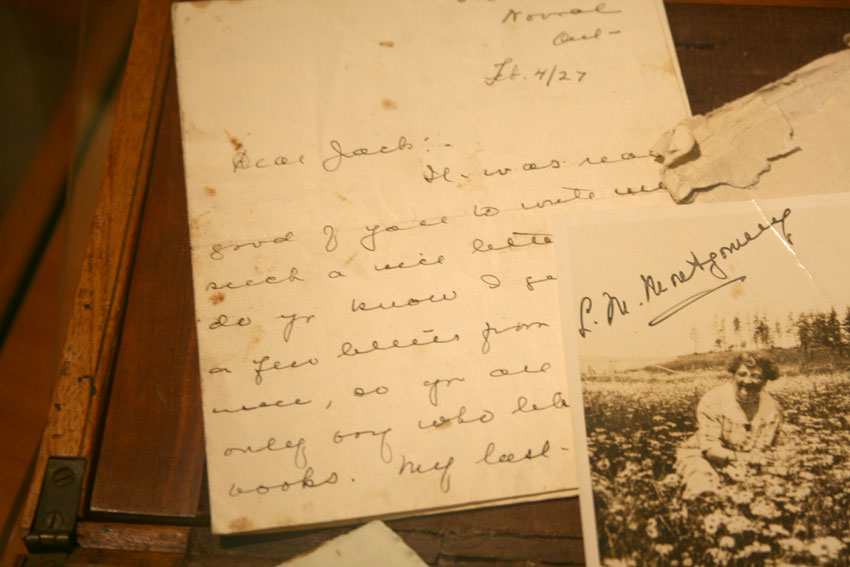 Norval
Ont-
Feb. 4/27
Dear Jack:-
It was rea
good of you to write me
such a nice lette
do yr know I ge
a few letters from
men, so yr are
only boy who like
books. My last-
L. M. Montgomery